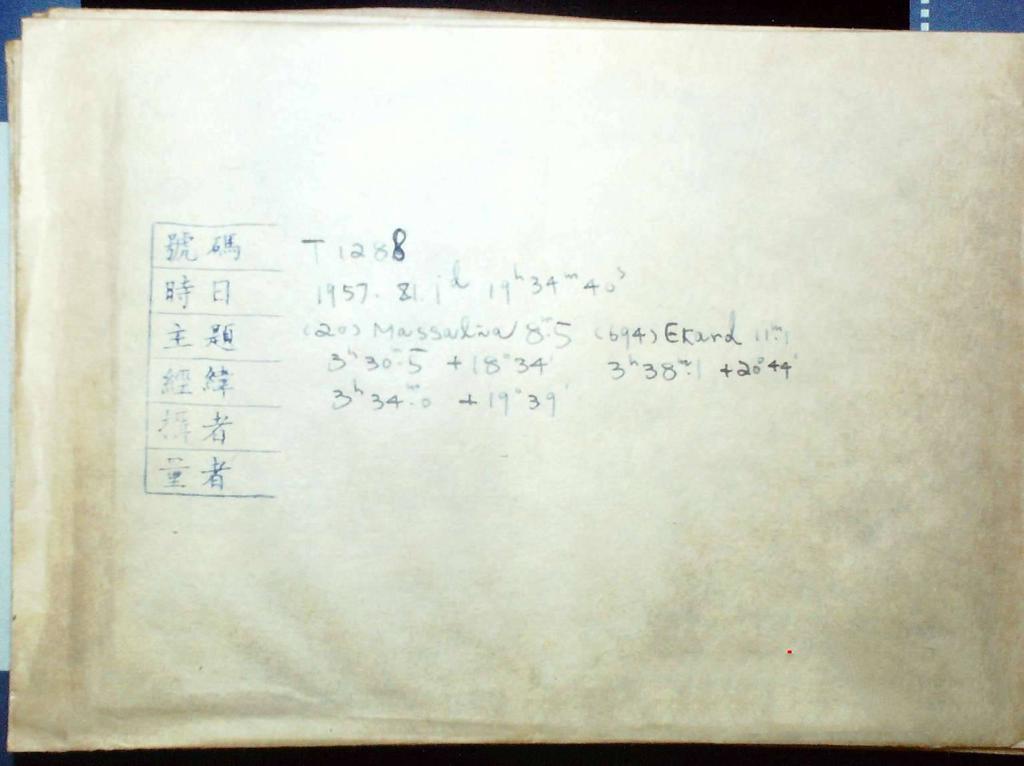 號碼 T 1288
時日 1957. 21.1ᵈ 19ʰ34ᵐ40ˢ
主題 (20) Massalia 8ᵐ.5 (694) Ekard 11ᵐ.1
經緯 3ʰ30ᵐ.5 +18°34' 3ʰ38ᵐ.1 +20°44'
3ʰ34ᵐ.0 +19°39'
攝者
量者